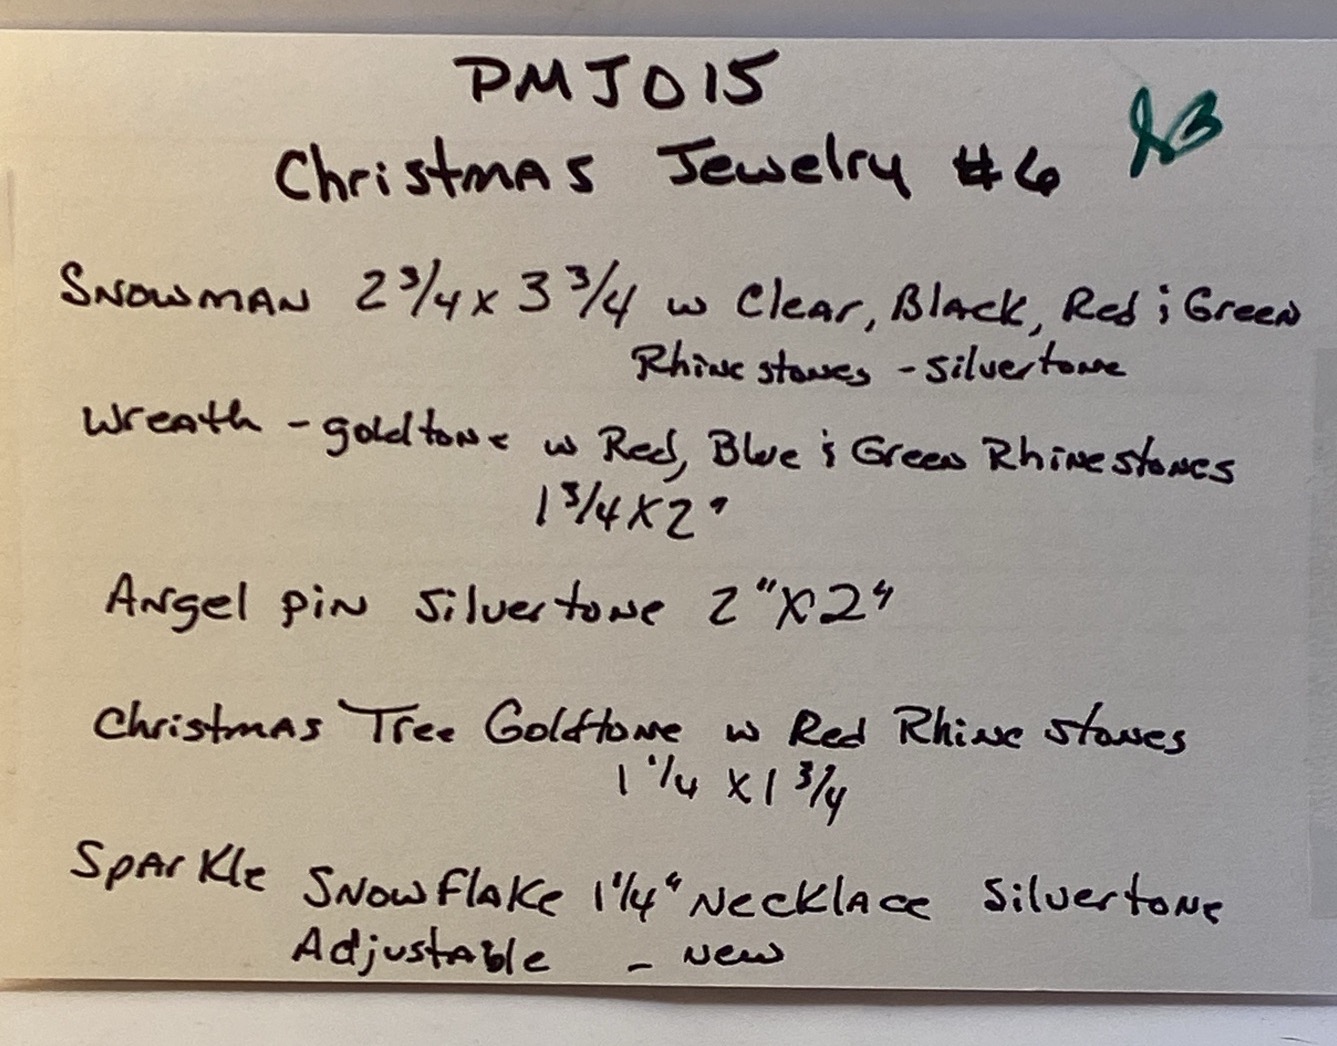 PMJ015
Christmas Jewelry #6
Snowman 2 3/4 x 3 3/4 w Clear, Black, Red & Green
Rhinestones - silvertone
Wreath - goldtone w Red, Blue & Green Rhinestones
1 3/4 x 2"
Angel pin silvertone 2" x 2"
Christmas Tree Goldtone w Red Rhinestones
1 1/4 x 1 3/4
Sparkle Snowflake 1 1/4" Necklace Silvertone
Adjustable - new